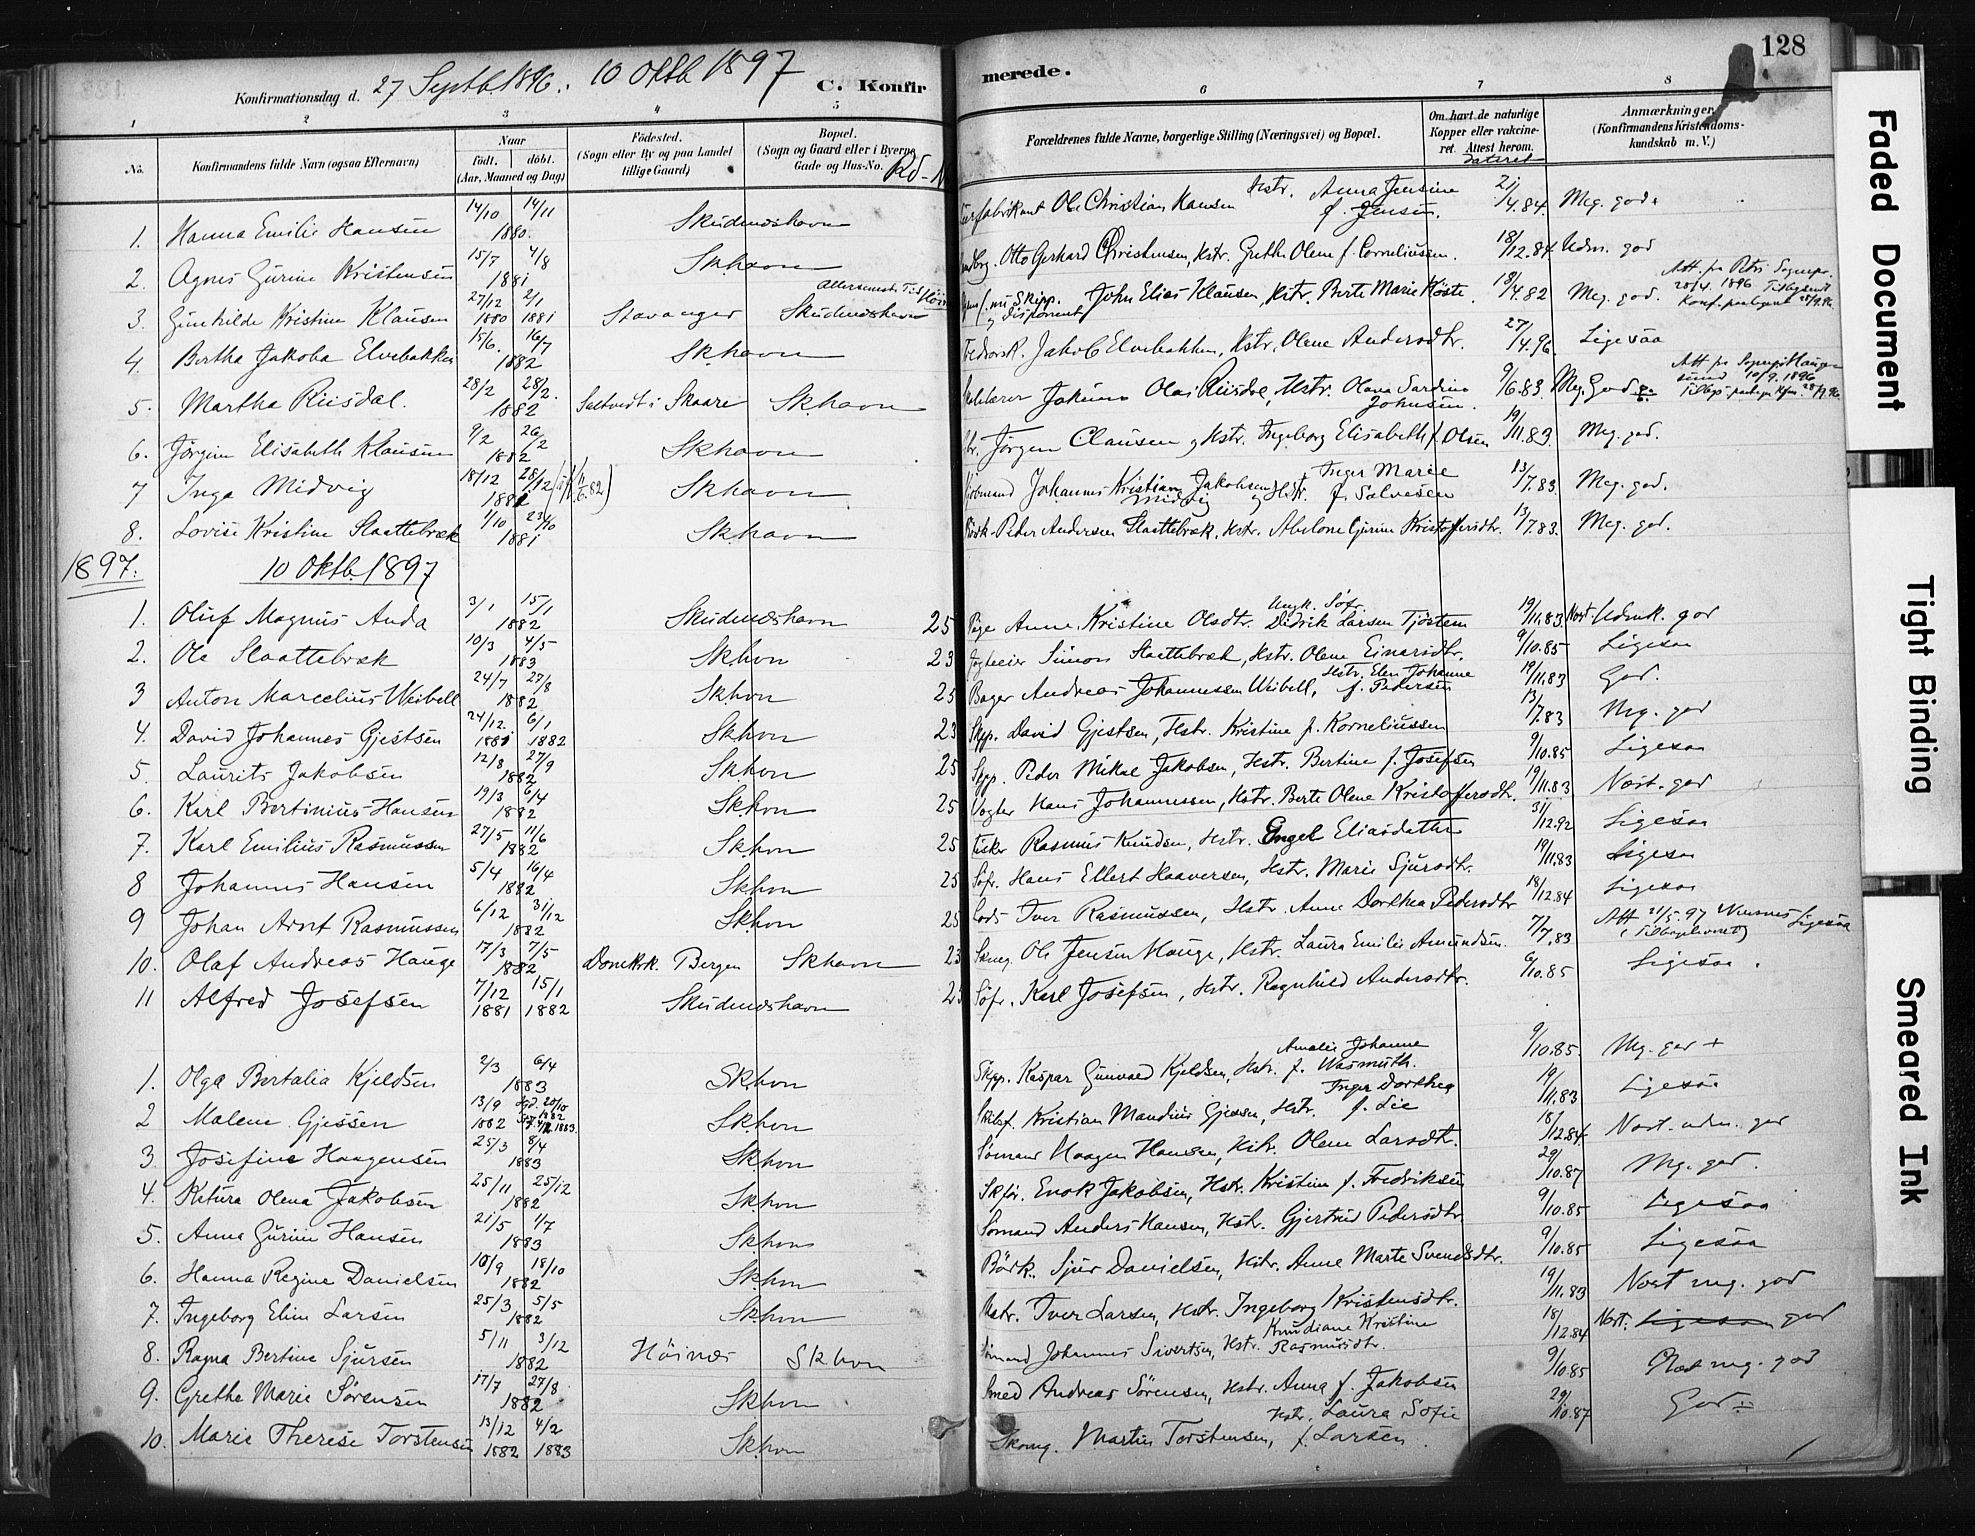 128
Konfirmationsdag d. 27 Septb 1896. 10 Oktb 1897
C. Konfirmerede.
1 2 3 4 5 6 7 8
No. Konfirmandens fulde Navn (ogsaa Efternavn) Naar født. døbt. (Aar, Maaned og Dag) Fødested. (Sogn eller By og paa Landet tillige Gaard) Bopæl. (Sogn og Gaard eller i Byerne Gade og Hus-No. Forældrenes fulde Navne, borgerlige Stilling (Næringsvei) og Bopæl. Om havt de naturlige Kopper eller vakcineret. Attest herom. dateret Anmærkninger (Konfirmandens Kristendomskundskab m. V.)
1. Hanna Emilie Hansen 14/10 14/11 1880. Skudeneshavn Ole Christian Hansen Hstr. Anna Jensine f. Jensen. 21/4.84. Meg. god
2. Agnes Gurine Kristensen 15/7 4/8 1881 Skhavn Otto Gerhard Christensen, Hstr. Grethe Olene f. Corneliussen. 18/12.84 Udm. god
3. Gunhilde Kristine Klausen 27/12 1880 2/1 1881 Stavanger Skudeneshavn John Elias Klausen, Hstr. Berte Marie Høste. 18/4.82 Meg. god. Att. fra Petri Sognepr. 28/4. 1896
4. Bertha Jakoba Elvebakken 15/6. 16/7 1882 Skhavn Jakob Elvebakken, Hstr. Olene Andersdtr. 27/4.96 Ligesaa
5. Martha Riisdal. 28/2 28/2. 1882 Saltveit i Skaare Skhavn Jakim Olai Riisdal, Hstr. Olava Sardine Johnsen. 9/6.83. Meg. god Att fra Sognepr. Haugesund 10/9. 1896
6. Jørgine Elisabeth Klausen 9/2 26/2 1882 Skhavn Jørgen Clausen, Hstr. Ingeborg Elisabeth f. Olsen 19/11.83. Meg. god.
7 Inga Midvig 18/12 28/12 1881 Skhavn Johannes Kristian Jakobsen Midvig Hstr. Inger Marie f. Salvesen 13/7.83. Meg. god.
8. Lovise Kristine Slaattebræk 1/10 23/10 1881 Skhavn Peder Andersen Slaattebræk, Hstr. Abelone Gurine Kristoffersdtr. 13/7.83. Meg. god.
1897. 10 Oktb. 1897
1. Oluf Magnus Anda 3/1 15/1 1882 Skudeneshavn 25 Pige Anne Kristine Olsdtr. Ungk. Søfr. Didrik Larsen Tjøstem 19/11.83 Næst. Udmk. god
2. Ole Slaattebræk 10/3 4/5 1883 Skhvn 23 Simon Slaattebræk, Hstr. Olene Einarsdtr. 9/10.85 Ligesaa
3 Anton Marcelius Weibell 24/7 27/8 1882 Skhvn 25 Bager Andreas Johannessen Weibell, Hstr. Elen Johanne f. Pedersen 19/11.83 God.
4. David Johannes Gjestsen 24/12 1881 6/1 1882 Skhvn 23 Skpp. David Gjestsen, Hstr. Kristine f. Korneliussen 13/7.83 Mg. god
5. Laurits Jakobsen 12/8 27/9 1882 Skhvn 25 Skpp. Peder Mikal Jakobsen, Hstr. Bertine f. Josefsen 9/10.85 Ligesaa
6. Karl Bertinius Hansen 19/3 6/4 1882 Skhvn 25 Vogter Hans Johannessen, Hstr. Berte Olene Kristoffersdtr. 19/11.83 Næst. god
7. Karl Emilius Rasmussen 27/5 11/6 1882 Skhvn 25 Fisker Rasmus Knudsen, Hstr. Engel Eliasdatter 31/12.92 Ligesaa
8 Johannes Hansen 5/4 16/4 1882 Skhvn 25 Søfr. Hans Ellert Haaversen, Hstr. Marie Sjursdtr. 19/11.83 Ligesaa
9 Johan Arnt Rasmussen 6/12 31/12 1882 Skhvn 25 Lods Iver Rasmussen, Hstr. Anne Dorthea Pedersdtr 18/12.84 Ligesaa
10. Olaf Andreas Hauge 17/3 7/5 1882 Domkrk. Bergen Skhavn 23 Skmg. Ole Jensen Hauge, Hstr. Laura Emilie Amundsen. 7/7.83 Att 21/5.97 Ligesaa
11 Alfred Josefsen 7/12 1881 15/1 1882 Skudeneshavn Søfr. Karl Josefsen, Hstr. Ragnhild Andersdtr. 9/10.85 Ligesaa.
1. Olga Bertalia Kjeldsen 2/3 6/4 1883 Skhvn Skpp. Kaspar Gunvald Kjeldsen, Hstr. Amalie Johanne f. Wasmuth. 9/10.85. Mg. god +
2 Malene Gjessen 13/9 1882 Skhvn Kristian Mandius Gjessen, Hstr. Inger Dorthea f. Lie 19/11.83 Ligesaa
3. Josefine Haagensen 25/3 8/4 1883 Skhvn Sømand Haagen Hansen, Hstr. Olene Larsdtr. 18/12.84. Næst. udm. god
4. Ketura Olena Jakobsen 25/11 25/12 1882 Skhvn Skfør. Enok Jakobsen, Hstr. Kristine f. Fredriksen 29/10.87 Mg. god.
5. Anna Gurine Hansen 21/5 1/7 1883 Skhvn Sømand Anders Hansen, Hstr. Gjertrud Pedersdtr 9/10.85 Ligesaa
6. Hanna Regine Danielsen 10/9 18/10 1882 Skhvn Børk. Sjur Danielsen, Hstr. Anne Marte Svendsdtr. 9/10.85 Ligesaa
7. Ingeborg Eline Larsen 25/3 5/5 1882 Skhvn Iver Larsen, Hstr. Ingeborg Kristensdtr. 19/11.83 Næst mg. god
8. Ragna Bertine Sjursen 5/11 3/12 1882 Høinæs Skhvn Sømand Johannes Sivertsen, Hstr. Knudiane Kristine Rasmusdtr. 18/12.84 Næst. Ligesaa god
9. Grethe Marie Sørensen 17/7 27/8 1882 Skhvn Smed Andreas Sørensen, Hstr. Anna f. Jakobsen 9/10.85 Næst mg. god
10. Marie Therese Torstensen 13/12 1882 4/2 1883 Skhvn Skomg. Martin Torstensen, Hstr. Laura Sofie f. Larsen. 29/10.87 God
Faded Document
Tight Binding
Smeared Ink